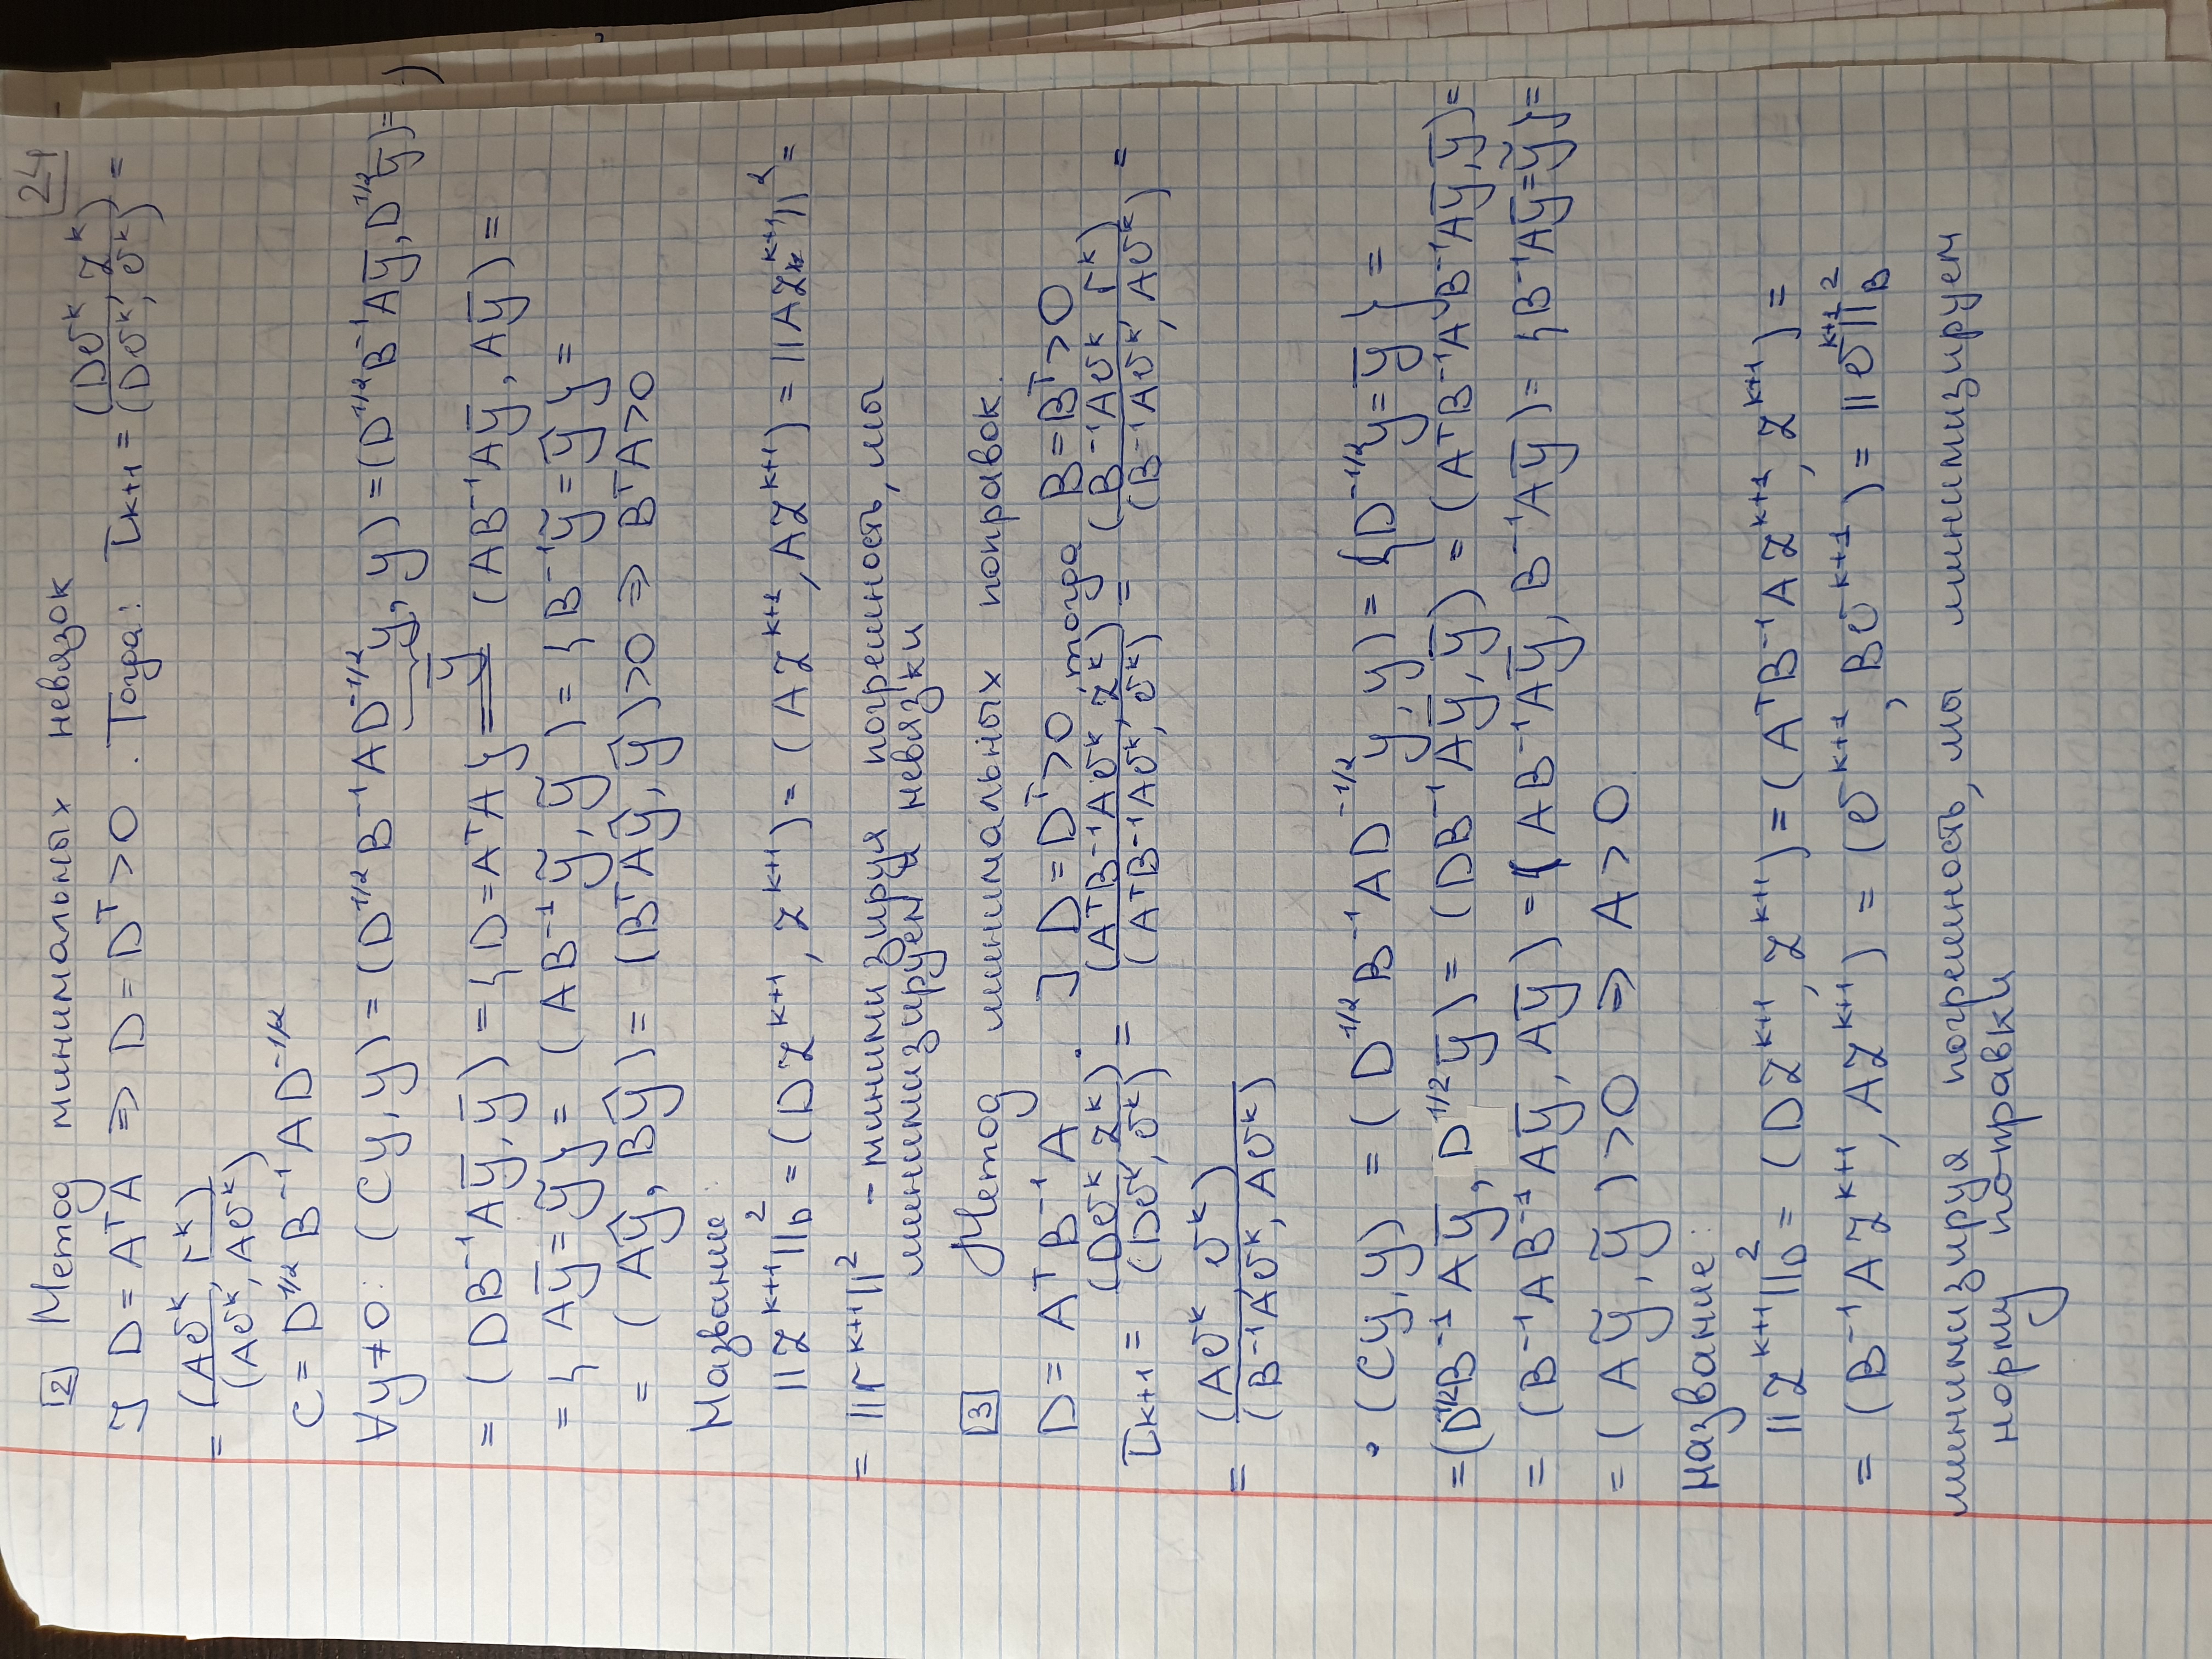 24
2 Метод минимальных невязок
] D = AᵀA ⇒ D = Dᵀ > 0. Тогда: τₖ₊₁ = (Dσᵏ, zᵏ)/(Dσᵏ, σᵏ) =
= (Aσᵏ, rᵏ)/(Aσᵏ, Aσᵏ)
C = D^{1/2} B⁻¹ A D^{-1/2}
∀y ≠ 0: (Cy, y) = (D^{1/2} B⁻¹ A D^{-1/2} y, y) = (D^{1/2} B⁻¹ A ȳ, D^{1/2} ȳ) =
ȳ
= (DB⁻¹Aȳ, ȳ) = { D = AᵀA } = (AB⁻¹Aȳ, Aȳ) =
= { Aȳ = ỹ } = (AB⁻¹ỹ, ỹ) = { B⁻¹ỹ = ŷ } =
= (Aŷ, Bŷ) = (BᵀAŷ, ŷ) > 0 ⇒ BᵀA > 0
Название:
||zᵏ⁺¹||²_D = (Dzᵏ⁺¹, zᵏ⁺¹) = (Azᵏ⁺¹, Azᵏ⁺¹) = ||Azᵏ⁺¹||² =
= ||rᵏ⁺¹||² - минимизируя погрешность, мы
минимизируем и невязки
3 Метод минимальных поправок.
D = AᵀB⁻¹A. ] D = Dᵀ > 0, тогда B = Bᵀ > 0
τₖ₊₁ = (Dσᵏ, zᵏ)/(Dσᵏ, σᵏ) = (AᵀB⁻¹Aσᵏ, zᵏ)/(AᵀB⁻¹Aσᵏ, σᵏ) = (B⁻¹Aσᵏ, rᵏ)/(B⁻¹Aσᵏ, Aσᵏ) =
= (Aσᵏ, σᵏ)/(B⁻¹Aσᵏ, Aσᵏ)
• (Cy, y) = (D^{1/2} B⁻¹ A D^{-1/2} y, y) = { D^{-1/2} y = ȳ } =
= (D^{1/2} B⁻¹ A ȳ, D^{1/2} ȳ) = (DB⁻¹Aȳ, ȳ) = (AᵀB⁻¹AB⁻¹Aȳ, ȳ) =
= (B⁻¹AB⁻¹Aȳ, Aȳ) = (AB⁻¹Aȳ, B⁻¹Aȳ) = { B⁻¹Aȳ = ỹ } =
= (Aỹ, ỹ) > 0 ⇒ A > 0
Название:
||zᵏ⁺¹||²_D = (Dzᵏ⁺¹, zᵏ⁺¹) = (AᵀB⁻¹Azᵏ⁺¹, zᵏ⁺¹) =
= (B⁻¹Azᵏ⁺¹, Azᵏ⁺¹) = (σᵏ⁺¹, Bσᵏ⁺¹) = ||σᵏ⁺¹||²_B
минимизируя погрешность, мы минимизируем
норму поправки